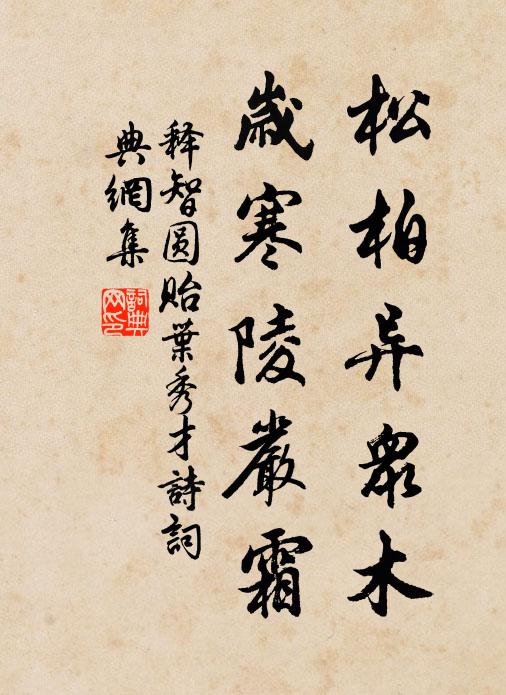 松柏异衆木
歲寒陵嚴霜
释智圆貽葉秀才詩詞
典網集
詞典网印